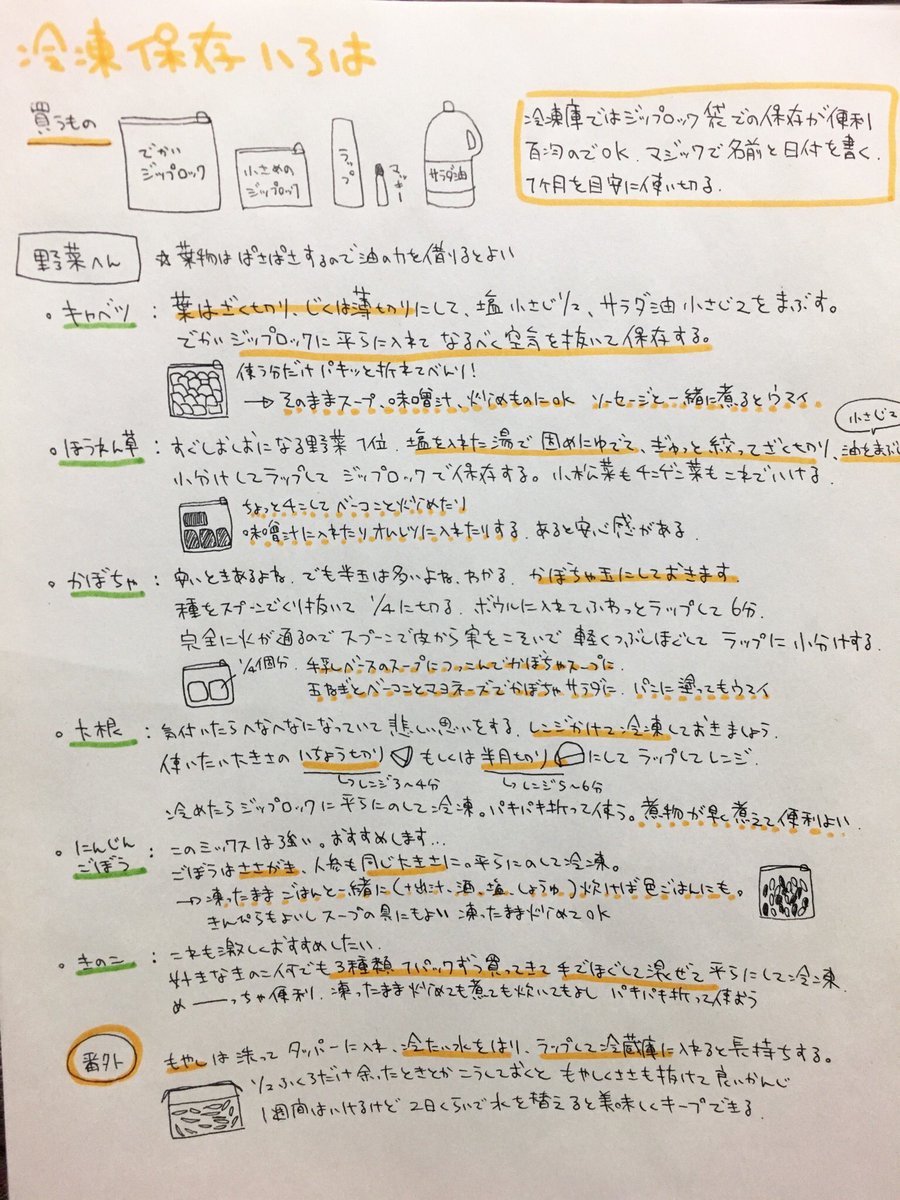 冷凍保存いろは
買うもの
でかいジップロック
小さめのジップロック
ラップ
マッキー
サラダ油
冷凍庫ではジップロック袋での保存が便利
百均のでOK. マジックで名前と日付を書く.
1ヶ月を目安に使い切る.
野菜へん ☆葉物はぱさぱさするので油の力を借りるとよい
・キャベツ : 葉はざく切り、じくは薄切りにして、塩小さじ1/2、サラダ油小さじ2をまぶす。
でかいジップロックに平らに入れてなるべく空気を抜いて保存する。
使う分だけパキッと折れてべんり!
→そのままスープ、味噌汁、炒めものにOK ソーセージと一緒に煮るとウマイ
小さじ2
・ほうれん草 : すぐしおしおになる野菜1位. 塩を入れた湯で固めにゆでて、ぎゅっと絞ってざく切り、油をまぶし
小分けしてラップしてジップロックで保存する。小松菜もチンゲン菜もこれでいける
ちょっとチンしてベーコンと炒めたり
味噌汁に入れたりオムレツに入れたりする. あると安心感がある
・かぼちゃ : 安いときあるよね. でも半玉は多いよね. わかる. かぼちゃ玉にしておきます.
種をスプーンでくり抜いて 1/4に切る. ボウルに入れてふわっとラップして6分.
完全に火が通るのでスプーンで皮から実をこそいで 軽くつぶしほぐして ラップに小分けする
1/4個分. 牛乳ベースのスープにつっこんでかぼちゃスープに.
玉ねぎとベーコンとマヨネーズでかぼちゃサラダに. パンに塗ってもウマイ
・大根 : 気付いたらへなへなになっていて悲しい思いをする. レンジかけて冷凍しておきましょう.
使いたい大きさの いちょう切り もしくは 半月切り にして ラップしてレンジ.
↳レンジ3〜4分 ↳レンジ5〜6分
冷めたらジップロックに平らにのして冷凍。パキパキ折って使う。煮物が早く煮えて便利よい
・にんじん ごぼう : このミックスは強い。おすすめします...
ごぼうはささがき、人参も同じ大きさに。平らにのして冷凍。
→凍ったままごはんと一緒に(+出汁、酒、塩、しょうゆ)炊けば色ごはんにも。
きんぴらもよいしスープの具にもよい 凍ったまま炒めてOK
・きのこ : これも激しくおすすめしたい.
好きなきのこ何でも3種類1パックずつ買ってきて手でほぐして混ぜて平らにして冷凍
め――っちゃ便利. 凍ったまま炒めても煮ても炊いてもよし パキパキ折って使おう
番外 もやしは洗ってタッパーに入れ、冷たい水をはり、ラップして冷蔵庫に入れると長持ちする。
1/2ふくろだけ余ったときとかこうしておくと もやしくささも抜けて良いかんじ
1週間はいけるけど 2日くらいで水を替えると美味しくキープできる.